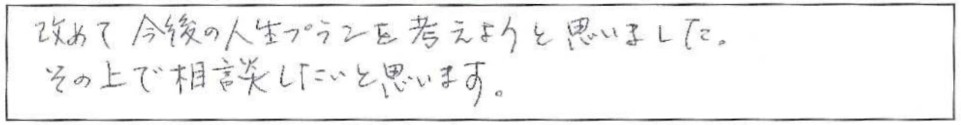 改めて今後の人生プランを考えようと思いました。
その上で相談したいと思います。